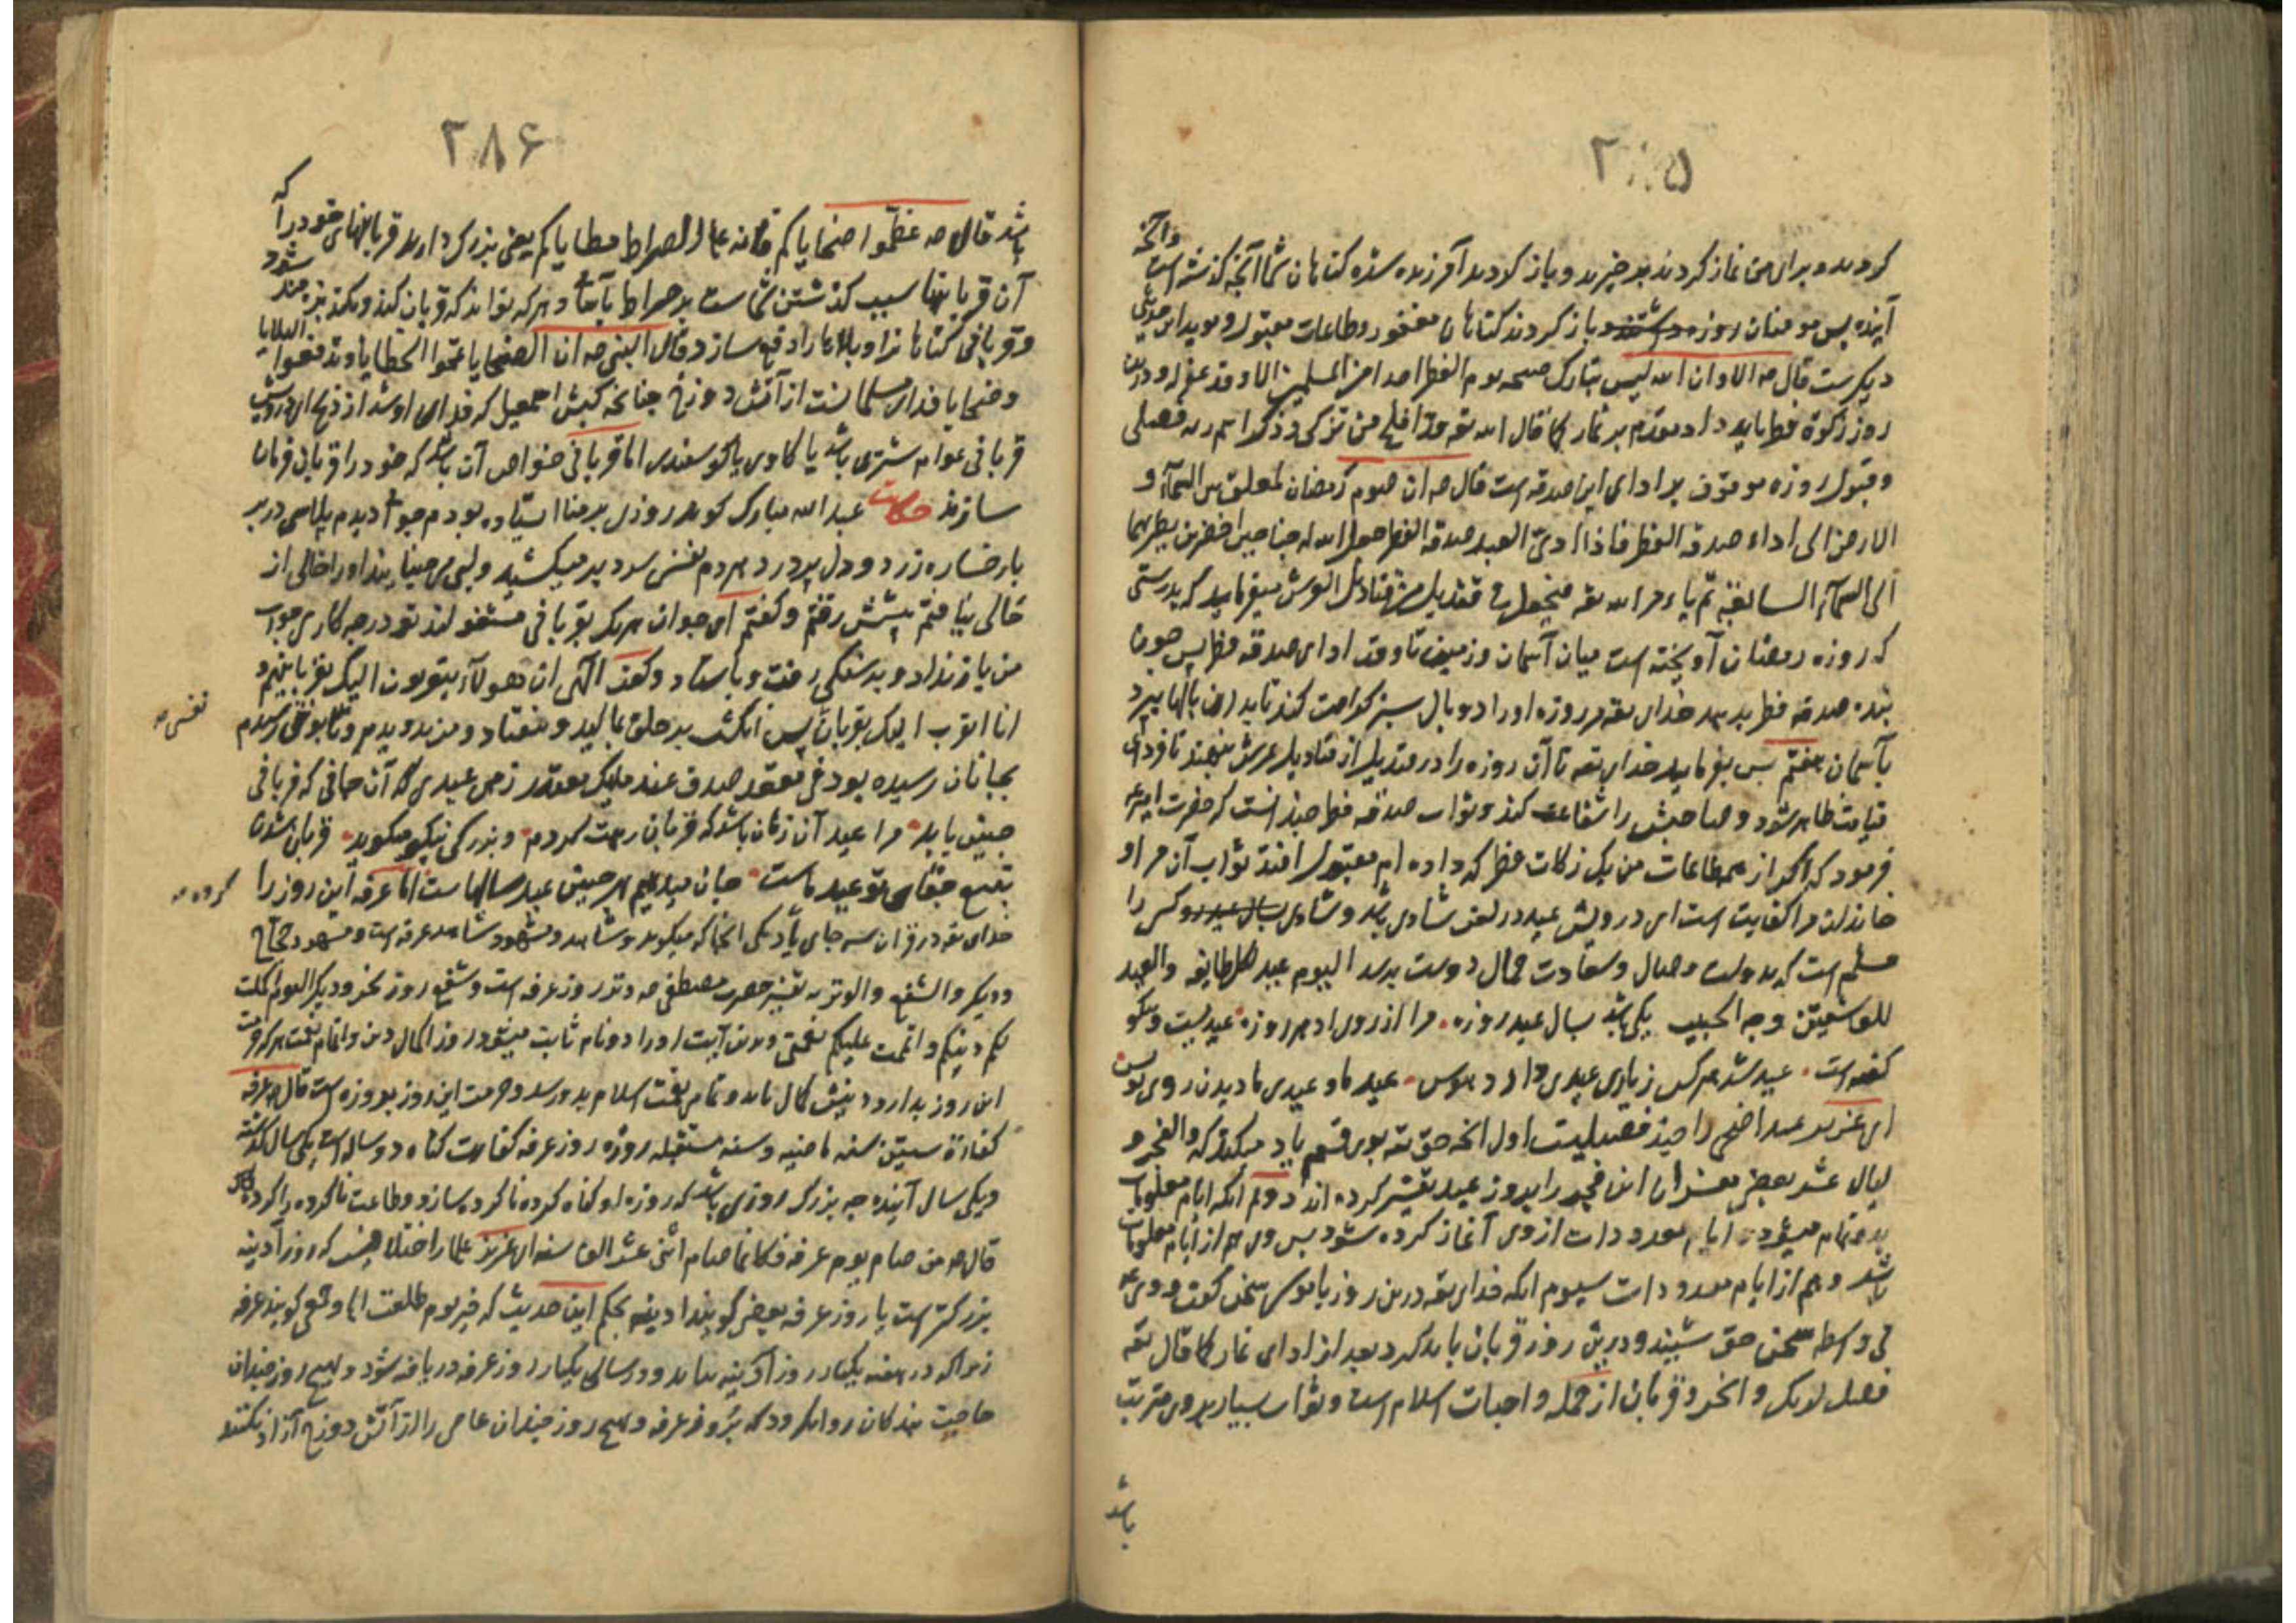 ۲۸۵
کردید و برای من نماز کردند برخیزید و باز کردید آمرزیده شده کناهان شما آنچه کذشته است وآنچه
آینده پس مومنان روزه داشتند و باز کردند کناهان مغفور و طاعات مقبول و موید این حدیثی
دیکرست قال صه الا وان ابلیس صبحه یوم الفطر احدا من المسلمین الا وقد غفر له و درین
روز زکوة فطر باید داد مقدم بر نماز کما قال الله تعه قد افلح من تزکی وذکر اسم ربه فصلی
وقبول روزه موقوف بر ادای این صدقه است قال صه ان صوم رمضان لمعلق بین السمآء و
الارض الی اداء صدقة الفطر فاذا ادی العبد صدقة الفطر جعل الله له جناحین اخضرین یطیر بهما
الی السمآء السابعة ثم یامر الله تعه فیجعل فی قندیل من قنادیل العرش میفرماید که بدرستی
که روزه رمضان آویخته است میان آسمان و زمین تا وقت ادای صدقه فطر پس چون
بنده صدقه فطر بدهد خدای تعه مر روزه او را دو بال سبز کرامت کند تا بدان بالها بپرد
بآسمان هفتم پس بفرماید خدای تعه تا آن روزه را در قندیل از قنادیل عرش بنهند تا فردای
قیامت ظاهر شود و صاحبش را شفاعت کند و ثواب صدقه فطر چندانست که حضرت امیر
فرمود که اکر از همه طاعات من یک زکات فطر که داده ام مقبول افتد ثواب آن مر او
خاندان مرا کفایت است ای درویش عید در لغت شادی باشد و شادی کسی را
مسلم است که بدولت وصال و سعادت جمال دوست برسد الیوم عید لکل طایفه والعید
للعاشقین وجه الحبیب یکی باشد بسال عید روزه مرا از روی او هر روزه عیدیست ونیکو
کفته است عید شد هر کس زیاری عیدی دارد هوس عید ما و عیدی ما دیدن روی تو بس
ای عزیز عید اضحی را چند فضیلیت اول انکه حق تعه بوی قسم یاد میکند که والفجر و
لیال عشر بعضی مفسران این فجر را بروز عید تفسیر کرده اند دوم انکه ایام معلومات
بدو تمام میشود و ایام معدودات از وی آغاز کرده شود پس وی هم از ایام معلومات
باشد و هم از ایام معدودات سیوم انکه خدای تعه درین روز با موسی سخن کفت و وی
بی واسطه سخن حق شنید و درین روز قربان باید کرد بعد از ادای نماز کما قال تعه
فصل لربک وانحر و قربان از جمله واجبات اسلام است و ثواب بسیار بروی مترتب
باشد
۲۸۶
باشد قال صه عظموا ضحایاکم فانه علی الصراط مطایاکم یعنی بزرک دارید قربانیهای خود را که
آن قربانیها سبب کذشتن شماست بر صراط بآسانی و هر که تواند که قربان کند و نکند بزه مند شود
وقربانی کناهانرا و بلاها را دفع سازد و قال النبی صه ان الضحایا تمحوا الخطایا وتدفعوا البلایا
وضحایا فدای مسلمانست از آتش دوزخ چنانچه کبش اسمعیل که فدای او شد از ذبح ای درویش
قربانی عوام شتری باشد یا کاوی یا کوسفندی اما قربانی خواص آن باشد که خود را قربانی فرمان
سازند حکایت عبدالله مبارک کوید روزی بر منا ایستاده بودم جوانی دیدم پلاسی دربر
با رخساره زرد و دل پر درد هر دم نفس سرد بر میکشید و لبی می جنبانید او را خالی از
خالی نیافتم پیشش رفتم و کفتم ای جوان هریک بقربانی مشغولند تو در چه کاری جواب
من باز نداد و بر سنکی رفت و باستاد و کفت الهی ان هولآء یتقربون الیک بقرابینهم و
انا اتقرب الیک بقربان پس انکشت بر حلق مالید و بیفتاد و من بدویدم و تا بوی رسیدم
نفسی صه
بجانان رسیده بود فی مقعد صدق عند ملیک مقتدر زهی عیدی که آن جانی که قربانی
چنین یابد مرا عید آن زمان باشد که قربان رهت کردم و بزرکی نیکو میکوید قربان شدن
بتیغ جفای تو عید ماست جان میدهیم بهر چنین عید سالهاست اما عرفه این روز را
کرده صه
خدای تعه در قران سه جای یاد یکی انجا که میکوید وشاهد ومشهود شاهد عرفه است و مشهود حجاج
ودیکر والشفع والوتر به تفسیر حضرت مصطفی صه وتر روز عرفه است و شفع روز نحر و دیکر الیوم اکملت
لکم دینکم و اتممت علیکم نعمتی و بدین آیت او را دو نام ثابت میشود روز اکمال دین و اتمام نعمت هر که حرمت
این روز بدارد دینش کمال یابد و تمامی نعمت اسلام بدو رسد و حرمت این روز بروزه است قال صه عرفه
کفارة سنتین سنه ماضیه و سنه مستقبله روزه روز عرفه کفارت کناه دو ساله است یکی سال کذشته
ویکی سال آینده چه بزرک روزی باشد که روزه او کناه کرده ناکرده سازد و طاعت ناکرده را کرده
قال صه من صام یوم عرفه فکانما صام اثنی عشر الف سنه ای عزیز علما را اختلاف هست که روز آدینه
بزرکتر است یا روز عرفه بعضی کویند آدینه بحکم این حدیث که خیر یوم طلعت و جمعی کویند عرفه
زیرا که در هفته یکبار روز آدینه بیاید و در سالی یکبار روز عرفه دریافته شود و هیچ روز چندان
حاجت بندکان روا نکردد که بروز عرفه و هیچ روز چندان عاصی را از آتش دوزخ آزاد نکنند